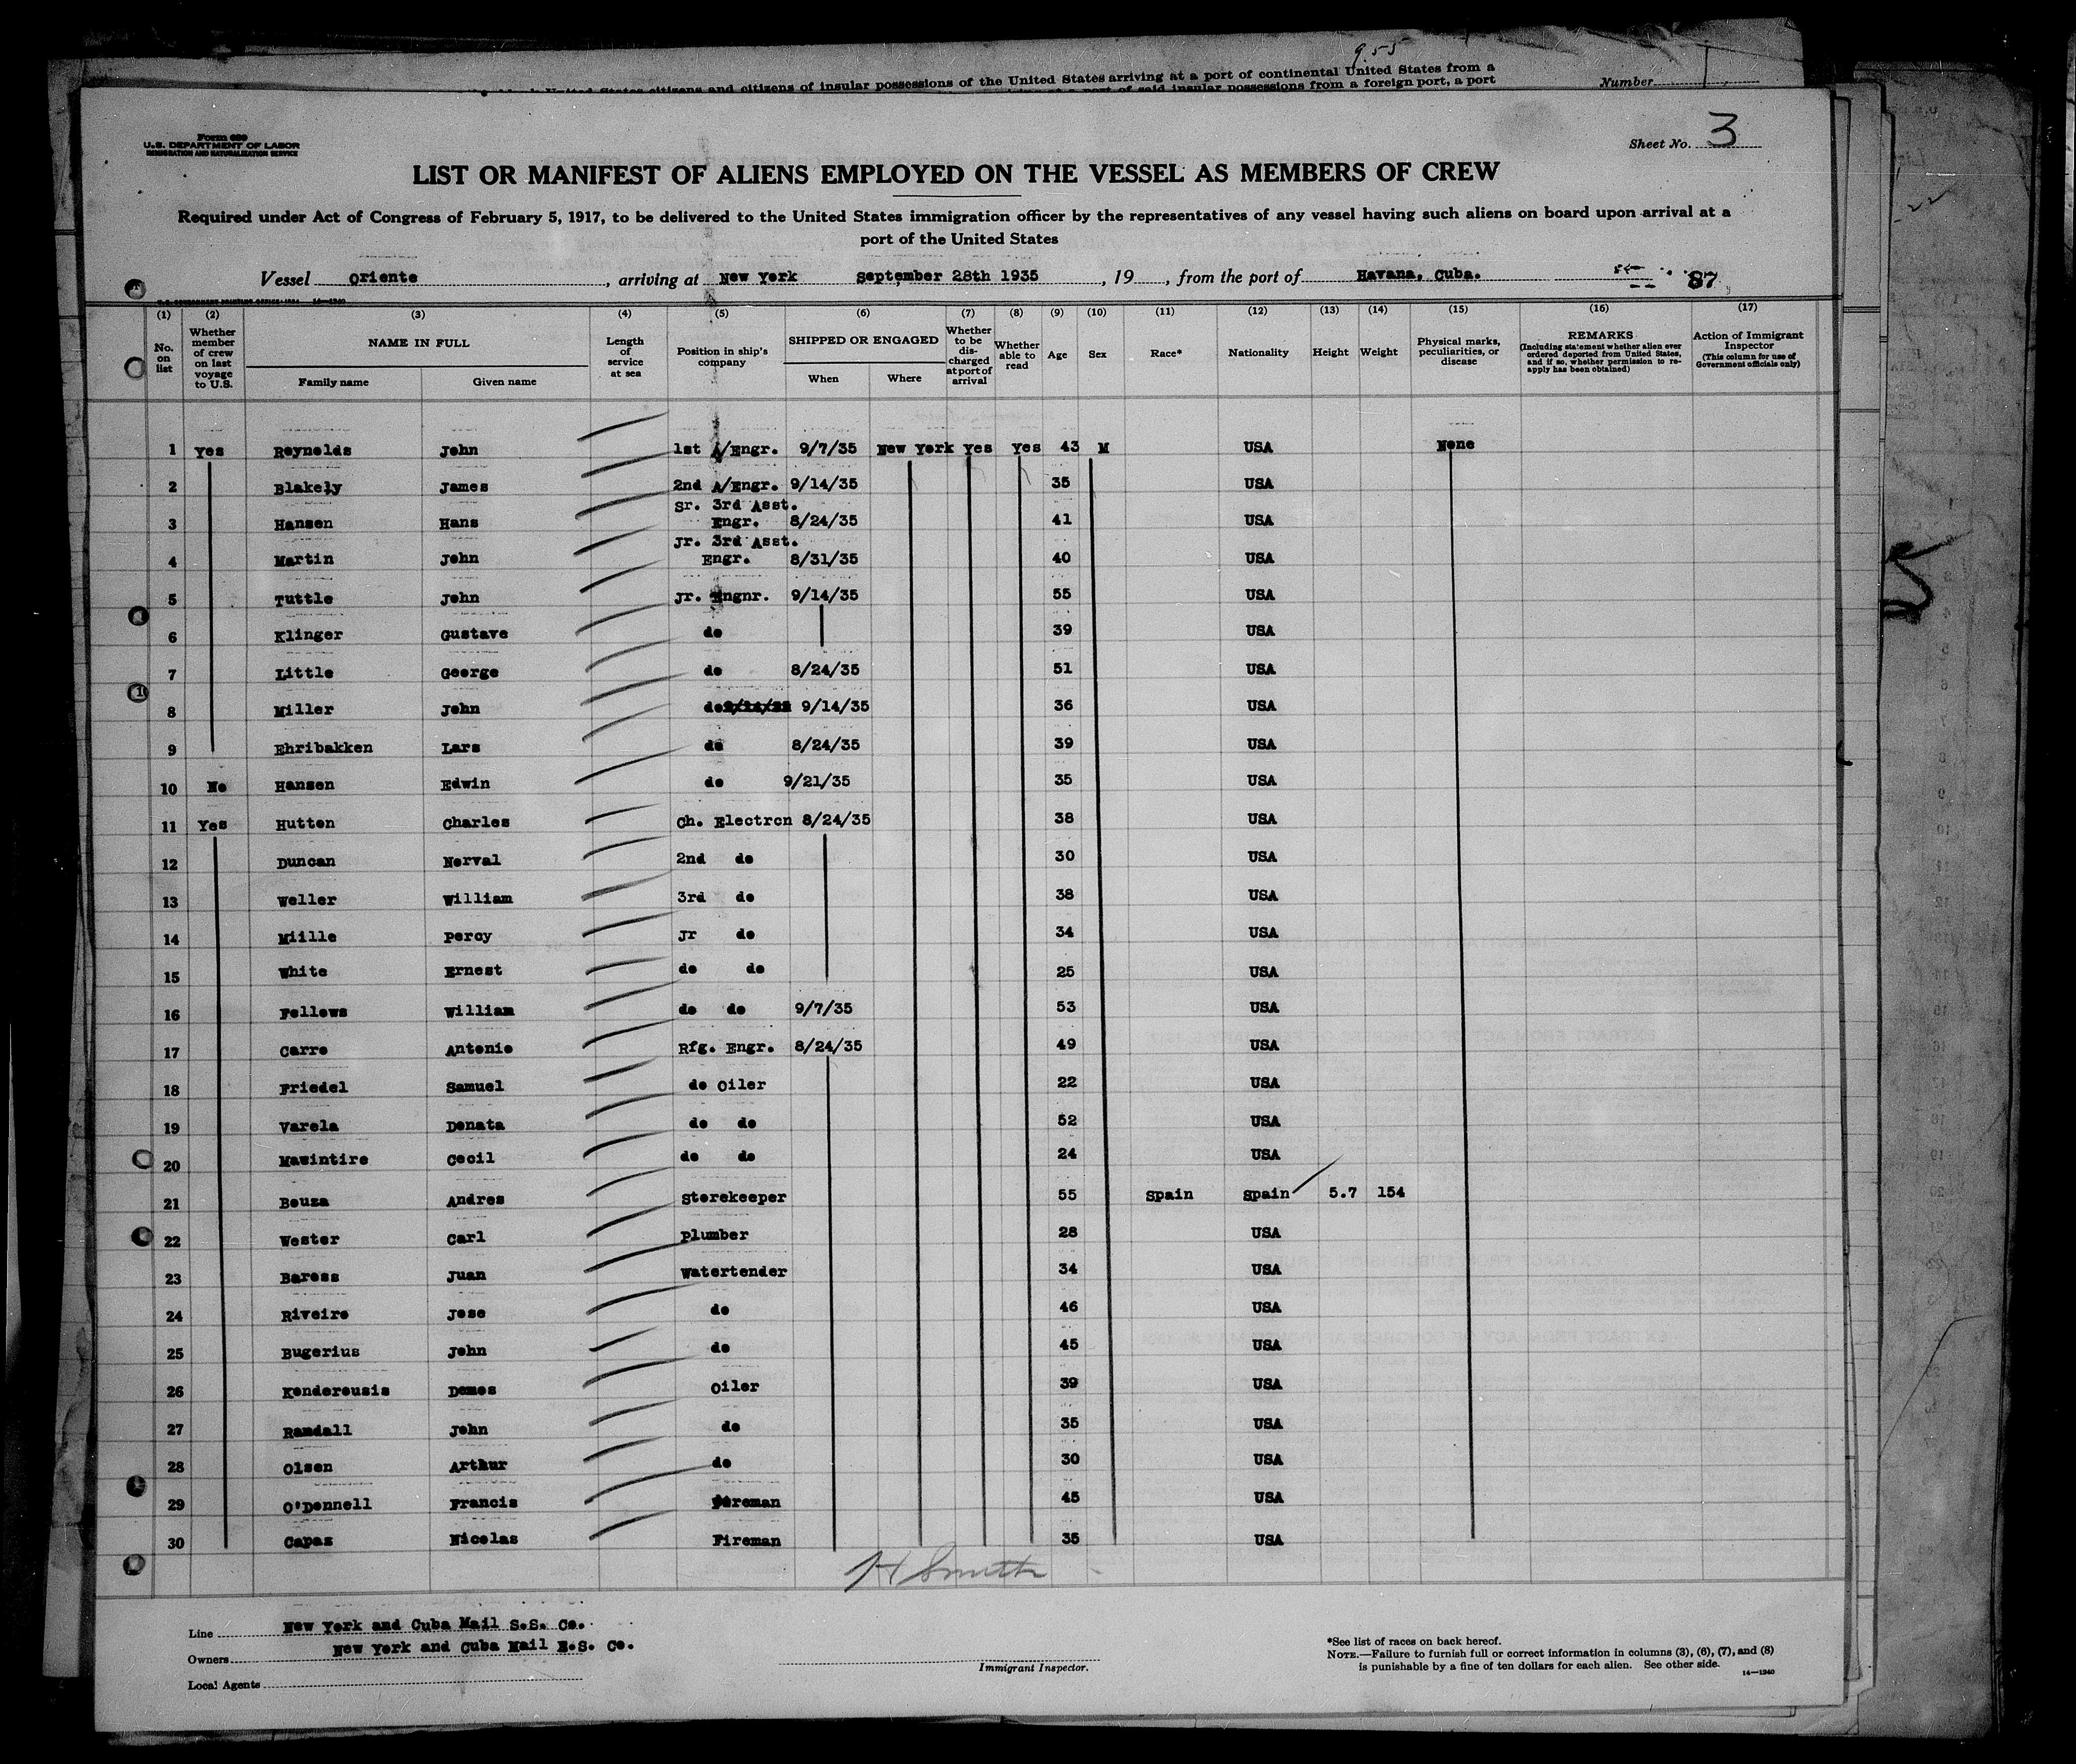 955
citizens and citizens of insular possessions of the United States arriving at a port of continental United States from a
insular possessions from a foreign port, a port
Number
Form 680
U.S. DEPARTMENT OF LABOR
IMMIGRATION AND NATURALIZATION SERVICE
Sheet No. 3
LIST OR MANIFEST OF ALIENS EMPLOYED ON THE VESSEL AS MEMBERS OF CREW
Required under Act of Congress of February 5, 1917, to be delivered to the United States immigration officer by the representatives of any vessel having such aliens on board upon arrival at a
port of the United States
Vessel Oriente, arriving at New York September 28th 1935, 19, from the port of Havana, Cuba. 87
(1) (2) (3) (4) (5) (6) (7) (8) (9) (10) (11) (12) (13) (14) (15) (16) (17)
No. on list
Whether member of crew on last voyage to U.S.
NAME IN FULL
Family name
Given name
Length of service at sea
Position in ship's company
SHIPPED OR ENGAGED
When
Where
Whether to be discharged at port of arrival
Whether able to read
Age
Sex
Race*
Nationality
Height
Weight
Physical marks, peculiarities, or disease
REMARKS
(Including statement whether alien ever ordered deported from United States, and if so, whether permission to re-apply has been obtained)
Action of Immigrant Inspector
(This column for use of Government officials only)
1 Yes Reynolds John 1st A/Engr. 9/7/35 New York Yes Yes 43 M USA None
2 Blakely James 2nd A/Engr. 9/14/35 35 USA
3 Hansen Hans Sr. 3rd Asst. Engr. 8/24/35 41 USA
4 Martin John Jr. 3rd Asst. Engr. 8/31/35 40 USA
5 Tuttle John Jr. Engnr. 9/14/35 55 USA
6 Klinger Gustave do 39 USA
7 Little George do 8/24/35 51 USA
8 Miller John do 9/14/35 36 USA
9 Ehribakken Lars do 8/24/35 39 USA
10 No Hansen Edwin do 9/21/35 35 USA
11 Yes Hutton Charles Ch. Electron 8/24/35 38 USA
12 Duncan Norval 2nd do 30 USA
13 Weller William 3rd do 38 USA
14 Miille Percy Jr do 34 USA
15 White Ernest do do 25 USA
16 Fellows William do do 9/7/35 53 USA
17 Carro Antonio Rfg. Engr. 8/24/35 49 USA
18 Friedel Samuel do Oiler 22 USA
19 Varela Donata do do 52 USA
20 Mawintire Cecil do do 24 USA
21 Bouza Andres Storekeeper 55 Spain Spain 5.7 154
22 Wester Carl Plumber 28 USA
23 Baross Juan Watertender 34 USA
24 Riveiro Jose do 46 USA
25 Bugerius John do 45 USA
26 Konderousis Demos Oiler 39 USA
27 Randall John do 35 USA
28 Olsen Arthur do 30 USA
29 O'Donnell Francis Fireman 45 USA
30 Capaz Nicolas Fireman 35 USA
H Smith
Line New York and Cuba Mail S.S. Co.
Owners New York and Cuba Mail S.S. Co.
Local Agents
Immigrant Inspector.
*See list of races on back hereof.
NOTE.—Failure to furnish full or correct information in columns (3), (6), (7), and (8)
is punishable by a fine of ten dollars for each alien. See other side.
14—1240